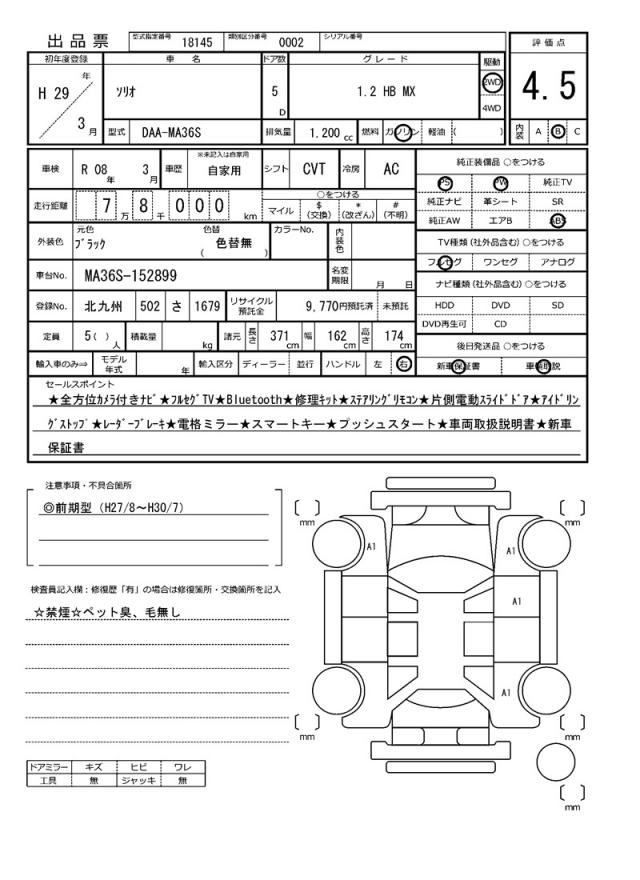 出品票 型式指定番号 18145 類別区分番号 0002 シリアル番号
初年度登録 車名 ドア数 グレード 駆動 評価点
H 29 年 3 月 ソリオ 5 D 1.2 HB MX 2WD 4WD 4.5
型式 DAA-MA36S 排気量 1.200 cc 燃料 ガソリン 軽油 ( ) 内装 A B C
車検 R 08 年 3 月 車歴 ※未記入は自家用 自家用 シフト CVT 冷房 AC 純正装備品 ○をつける
PS PW 純正TV
走行距離 7 万 8 千 0 0 0 km ○をつける 純正ナビ 革シート SR
マイル $(交換) *(改ざん) #(不明) 純正AW エアB ABS
外装色 元色 ブラック 色替 ( 色替無 ) カラーNo. 内装色 TV種類 (社外品含む) ○をつける
フルセグ ワンセグ アナログ
車台No. MA36S-152899 名変期限 月 日 ナビ種類 (社外品含む) ○をつける
登録No. 北九州 502 さ 1679 リサイクル預託金 9,770円預託済 未預託 HDD DVD SD
DVD再生可 CD
定員 5( ) 人 積載量 kg 諸元 長さ 371 cm 幅 162 cm 高さ 174 cm 後日発送品 ○をつける
輸入車のみ⇒ モデル年式 年 輸入区分 ディーラー 並行 ハンドル 左 右 新車保証書 車輌取説
セールスポイント
★全方位カメラ付きナビ★フルセグTV★Bluetooth★修理キット★ステアリングリモコン★片側電動スライドドア★アイドリン
グストップ★レーダーブレーキ★電格ミラー★スマートキー★プッシュスタート★車両取扱説明書★新車
保証書
注意事項・不具合箇所
◎前期型（H27/8～H30/7）
検査員記入欄：修復歴「有」の場合は修復箇所・交換箇所を記入
☆禁煙☆ペット臭、毛無し
mm mm
A1 A1
A1
A1
mm mm
mm
ドアミラー キズ ヒビ ワレ
工具 無 ジャッキ 無